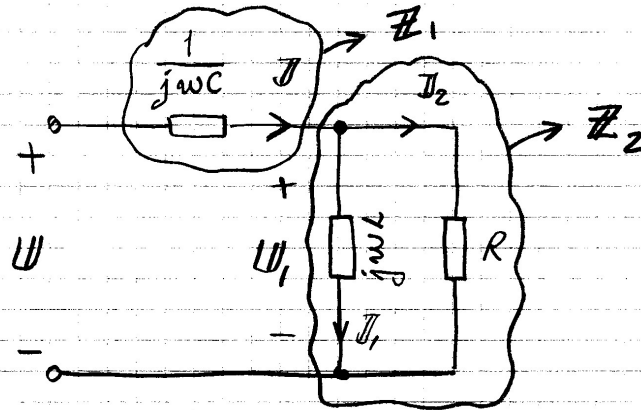 1
jwC
𝕀
ℤ1
𝕀2
ℤ2
+
+
𝕌
𝕌1
jwL
R
−
−
𝕀1